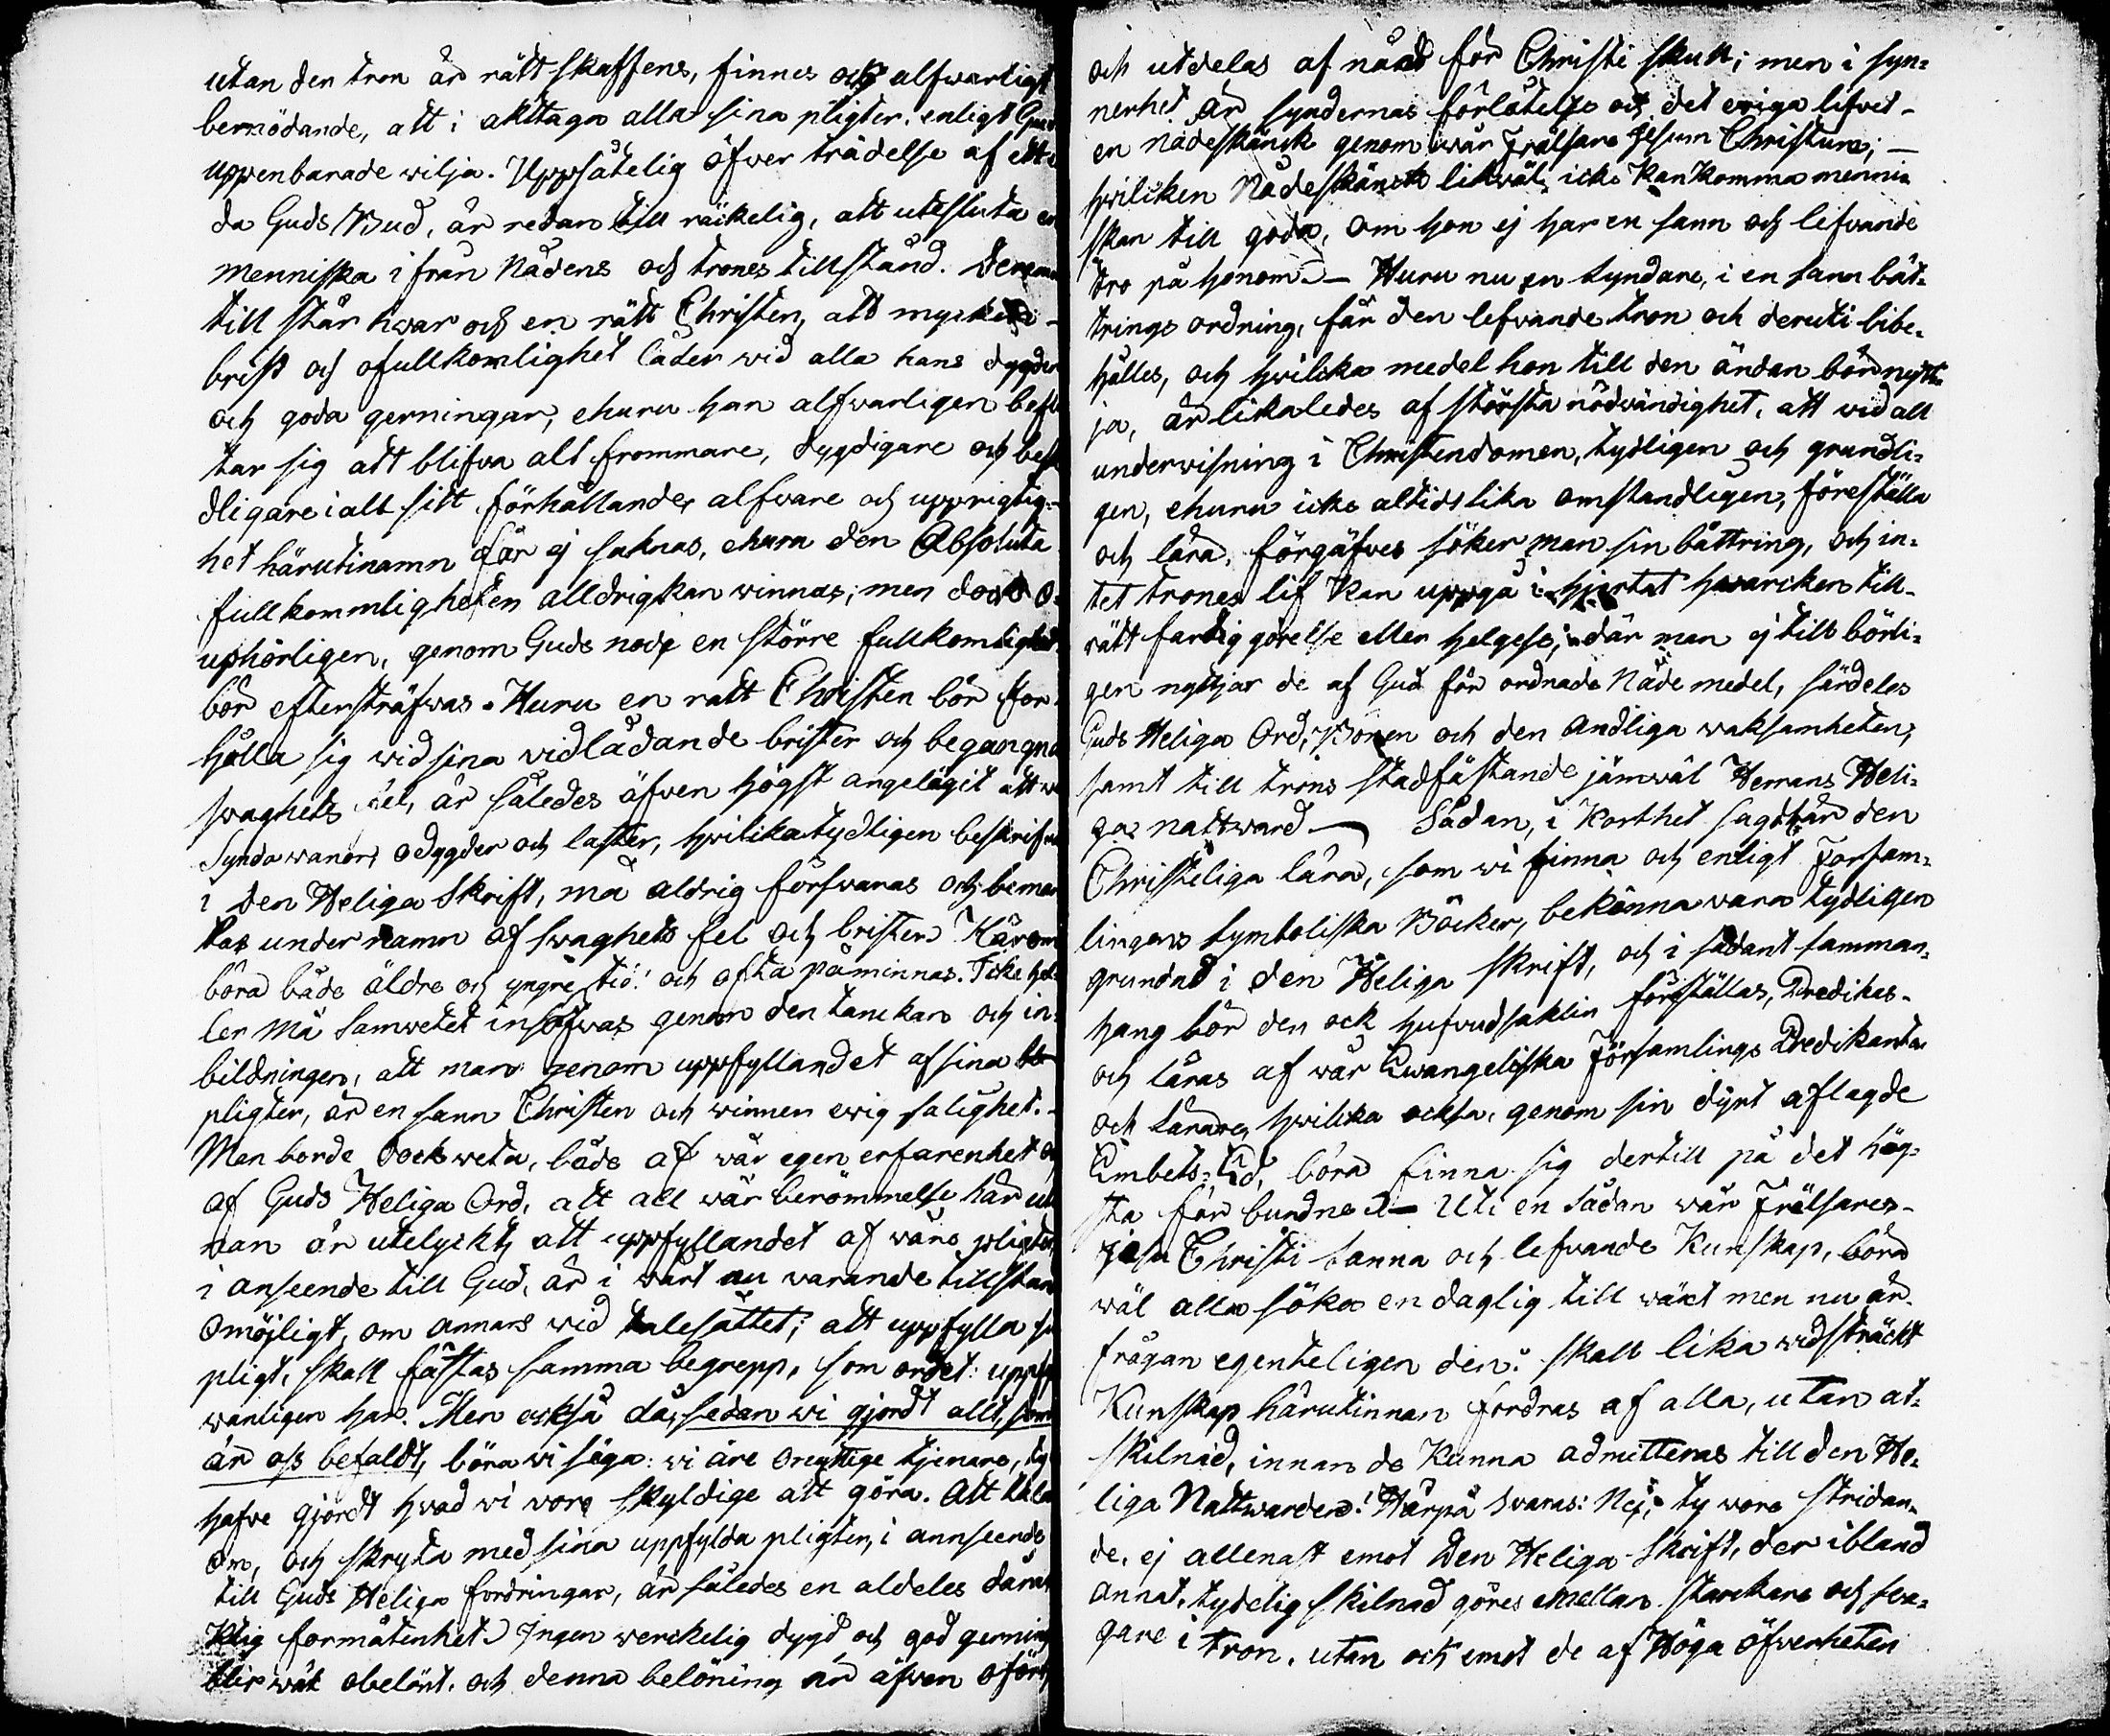 utan den tron är rätt skaffens, finnes och alfwarligt
bemödande, att i akttaga alla sina pligter, enligt Guds
uppenbarade wilja. Uppsåtelig öfver trädelse af ett
da Guds Bud, är redan till räckelig, att utesluta en
menniska i från Nådens och trones tillstånd. Deremot
till står hwar och en rätt Christen, att mycken
brist och ofullkomlighet låder wid alla hans dygder
och goda gerningar, ehuru han alfvarligen befli
tar sig att blifva alt frommare, dygdigare och beskе
dligare i alt sitt förhållande, alfvare och upprigtig-
het härutinnamn får ej saknas, ehuru den Absoluta
fullkommligheten alldrig kan winnas; men dock o=
uphörligen, genom Guds node en större fullkomlighet
bör eftersträfwas. Huru en rätt Christen bör för
hålla sig wid sina vidlådande brister och begångna
swaghets fel, är således äfven högst angelägit att we
Synda wanor, odygder och laster, hwilka tydligen beskrifwas
i den Heliga Skrift, må aldrig försvaras och beman
tas under namn af swaghets fel och brister. Härom
böra både äldre och yngre tid: och ofta påminnas. Icke hel
ler må Samwetet insöfwas genom den tanckan och in=
bildningen, att man genom uppfyllandet af sina
pligter, är en sann Christen och winner ewig salighet.
Man borde dock weta, både af wår egen erfarenhet och
af Guds Heliga Ord, att all wår berömmelse här uti
nan är utelyckt, att uppfyllandet af wåre pligter
i anseende till Gud, är i wårt nu varande tillstånd
omöjligt, om annars wid talesättet; att uppfylla sin
pligt, skall fästas samma begrepp, som ordet: uppfy
wanligen har. Men också då, sedan wi gjordt allt, som
är oss befaldt, böra wi säga: wi äre Onyttige tjenare, ty wi
hafve gjordt hvad wi vore skyldige att göra. Att tala
om, och skryta med sina uppfylda pligter, i annseende
till Guds Heliga fordringar, är således en aldeles dårak
ktig förmätenhet. Ingen werckelig dygd och god gerning
blir wäl obelönt, och denna belöning är äfven oförtj
och utdelas af nåd för Christi skull; men i syn=
nerhet är syndernas förlåtelse och det eviga lifvet-
en nådeskänck genom wår Frälsare Jesum Christum;-
hwilcken Nådeskänck likwäl, icke kan komma menni=
skan till goda, om hon ej har en sann och lefvande
tro på honom. — Huru nu en Syndare, i en sann bät=
trings ordning, får den lefvande tron och deruti bibe=
hålles, och hwilcka medel hon till den ändan bör nytt=
ja, är likaledes af största nödvändighet, att vid all
underwisning i Christendomen, tydligen och grundli=
gen, ehuru icke altids lika omständligen, föreställa
och lära. Förgäfves söker man sin bättring, och in=
tet trones lif kan uppgå i hjertat hwarcken till-
rätt färdig görelse eller helgese; där man ej till börli=
gen nyttjar de af Gud för ordnade Nåde medel, särdeles
Guds Heliga Ord, Bönen och den Andliga waksamheten,
samt till trons stadfästande jämwäl Herrans Heli=
ga nattward — Sådan, i korthet sagdt, är den
Christeliga lära, som wi finna och enligt Försam=
lingens Symboliska Böcker, bekänna vara tydligen
grundad i den Heliga Skrift, och i sådant samman=
hang bör den ock hufvudsaklin föreställas, Predikas-
och läras af wår Ewangeliska Församlings Predikanter
och Lärare, hwilcka ocksa, genom sin dyrt aflagde
Embets=Ed, böra finna sig dertill på det hög=
sta för bundne. — Uti en sådan wår Frälsares-
Jesu Christi sanna och lefvande Kunskap, böra
wäl alla söka en daglig till wäxt men nu är
frågan egenteligen den: skall lika widsträckt
Kunskap härutinnan fordras af alla, utan åt=
skilnad, innan de Kunna admitteras till den He=
liga Nattwarden! Härpå svaras: Nej, ty wore stridan=
de, ej allenast emot Den Heliga Skrift, der ibland
annat, tydelig skilnad göres emellan starckare och sva=
gare i tron, utan och emot de af Höga öfverheten